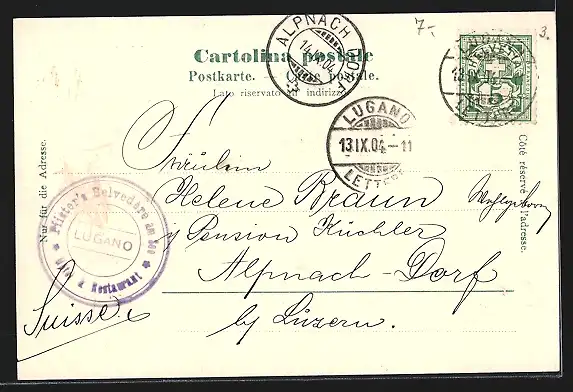 7.-
3.
Cartolina postale
Postkarte. - Carte postale.
Lato riservato all' indirizzo.
ALPNACH DORF
14.IX.04
HELVETIA
5
LUGANO
13.IX.04.-11
LETTERE
Nur für die Adresse.
Côté réservé à l'adresse.
Fräulein
Helene Braun
Wohlgeboren
p/ Pension Küchler
Alpnach-Dorf
by Luzern.
Suisse
Pfister's Belvedere au lac
LUGANO
Hôtel & Restaurant